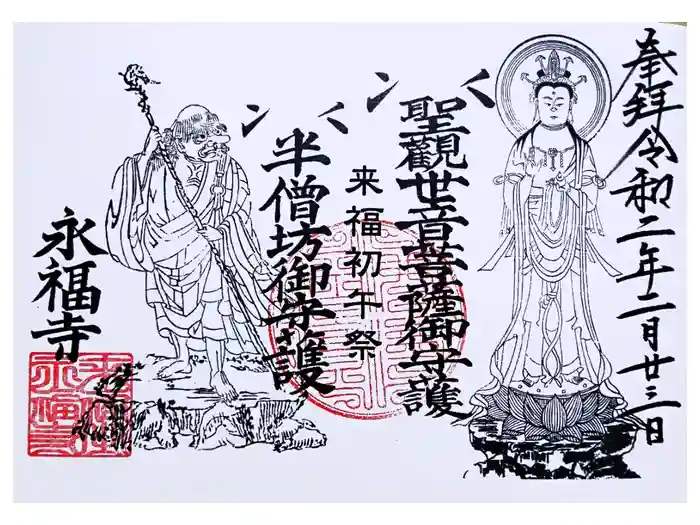 奉拝令和二年二月廿三日
聖觀世音菩薩御守護
来福初午祭
半僧坊御守護
永福寺